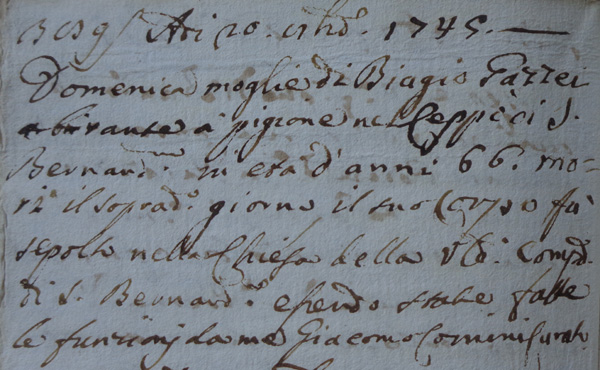 Adi 20. 1745.
Domenica moglie di Biagio Pazzei
abitante à pigione nel Ceppo di S.
Bernard.º in età d'anni 66. mo-
rì il soprad.º giorno il suo Corpo fù
sepolto nella Chiesa della Comp.
di S. Bernard.º essendo state fatte
le funzioni da me Giacomo Comini Curato